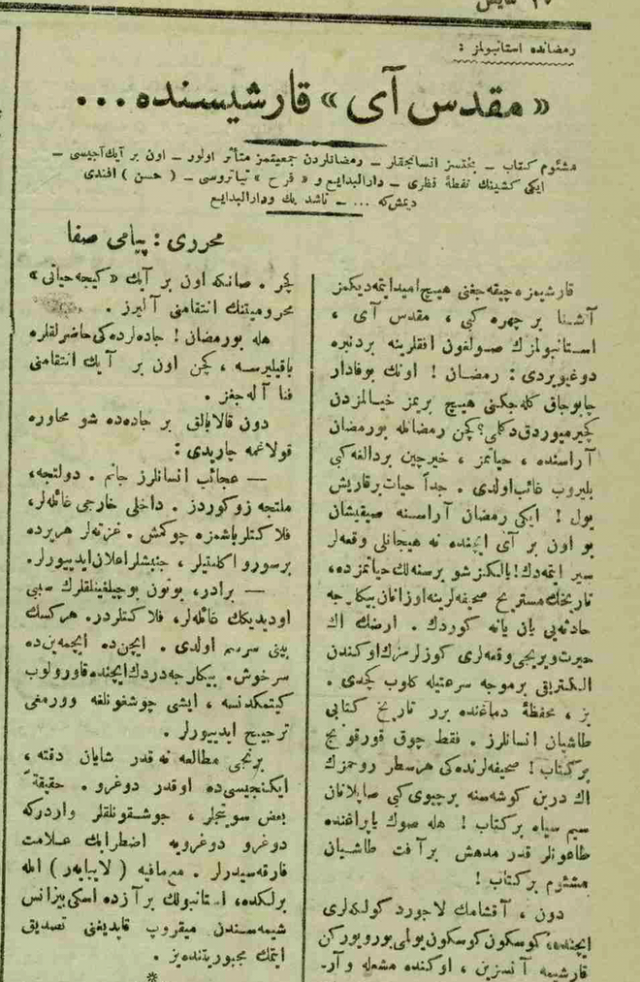 رمضانده استانبولمز :
« مقدس آی » قارشیسنده ...
مشئوم کتاب ـ بختسز انسانجقلر ـ رمضانلردن جمعیتمز متأثر اولور ـ اون بر آیك آجیسی ـ
ایکی کشینك نقطهٔ نظری ـ دارالبدایع و « فرح » تیاتروسی ـ ( حسن ) افندی
دیمش که ... ـ ناشد بك ودارالبدایع
محرری : پیامی صفا
قارشیمزه چیقه جغنی هیچ امید ایتمه دیکمز
آشنا بر چهره کبی ، مقدس آی ،
استانبولمزك صولغون افقلرینه بردنبره
دوغیویردی : رمضان ! اونك بوقادار
چابوجاق کله جکنی هیچ بریمز خیالمزدن
کچیرمیوردق دکلمی؟ کچن رمضانله بورمضان
آراسنده ، حیاتمز ، خیرچین بردالغه کبی
بلیروب غائب اولدی . جداً حیات برقاریش
یول ! ایکی رمضان آراسنه صیقیشان
بو اون بر آی ایچنده نه هیجانلی وقعه لر
سیر ایتمه دك! یالکز شو برسنه لك حیاتمزده،
تاریخك مستریح صحیفه لرینه اوزانان بیكلرجه
حادثه یی یان یانه کوردك . ارضك اك
حیرت ویریجی وقعه لری کوزلرمزك اوکندن
الکتریقی برموجه سرعتیله کلوب کچدی .
بز ، محفظهٔ دماغنده برر تاریخ کتابی
طاشیان انسانلرز . فقط چوق قورقونج
برکتاب ! صحیفه لرنده کی هرسطر روحمزك
اك درین کوشه سنه برچیوی کبی صاپلانان
سیم سیاه برکتاب ! هله صوك یاپراغنده
طاعونلر قدر مدهش برآفت طاشیان
مشئوم برکتاب !
دون ، آقشامك لاجورد کولکه لری
ایچنده، کوسکون کوسکون یولمی یورویورکن
قارشیمه آنسزین ، اوکنده مشعله و آر۔
کچر . صانکه اون بر آیك « کیجه حیاتی »
محرومیتنك انتقامنی آلیرز .
هله بورمضان ! جاده لرده کی حاضرلقلره
باقیلیرسه ، کچن اون بر آیك انتقامنی
فنا آله جغز .
دون قالابالق بر جاده ده شو محاوره
قولاغمه چارپدی :
— عجائب انسانلرز جانم . دولتجه،
ملتجه زوکوردز . داخلی خارجی غائله لر،
فلاکتلر باشمزه چوکمش . غزته لر هریرده
برسورو اکلنتیلر ، جنبشلر اعلان ایدییورلر.
— برادر، بوتون بوچیلغینلقلرك سببی
اودیدیکك غائله لر، فلاکتلردر. هرکسك
بینی سرسم اولدی . ایچن ده ایچمه ین ده
سرخوش . بیكلرجه دردك ایچنده قاورولوب
کیتمکدنسه ، ایشی جوشغونلغه وورمغی
ترجیح ایدییورلر .
برنجی مطالعه نه قدر شایان دقتسه ،
ایکنجیسی ده اوقدر دوغرو . حقیقةً
بعض سوینجلر ، جوشقونلقلر واردرکه
دوغرو دوغرویه اضطرابك علامت
فارقه سیدرلر . مع مافیه ( لایبایر ) ایله
برلکده، استانبولك برآزده اسکی بیزانس
شیمه سندن میقروب قاپدیغنی تصدیق
ایتمك مجبوریتنده یز .
*